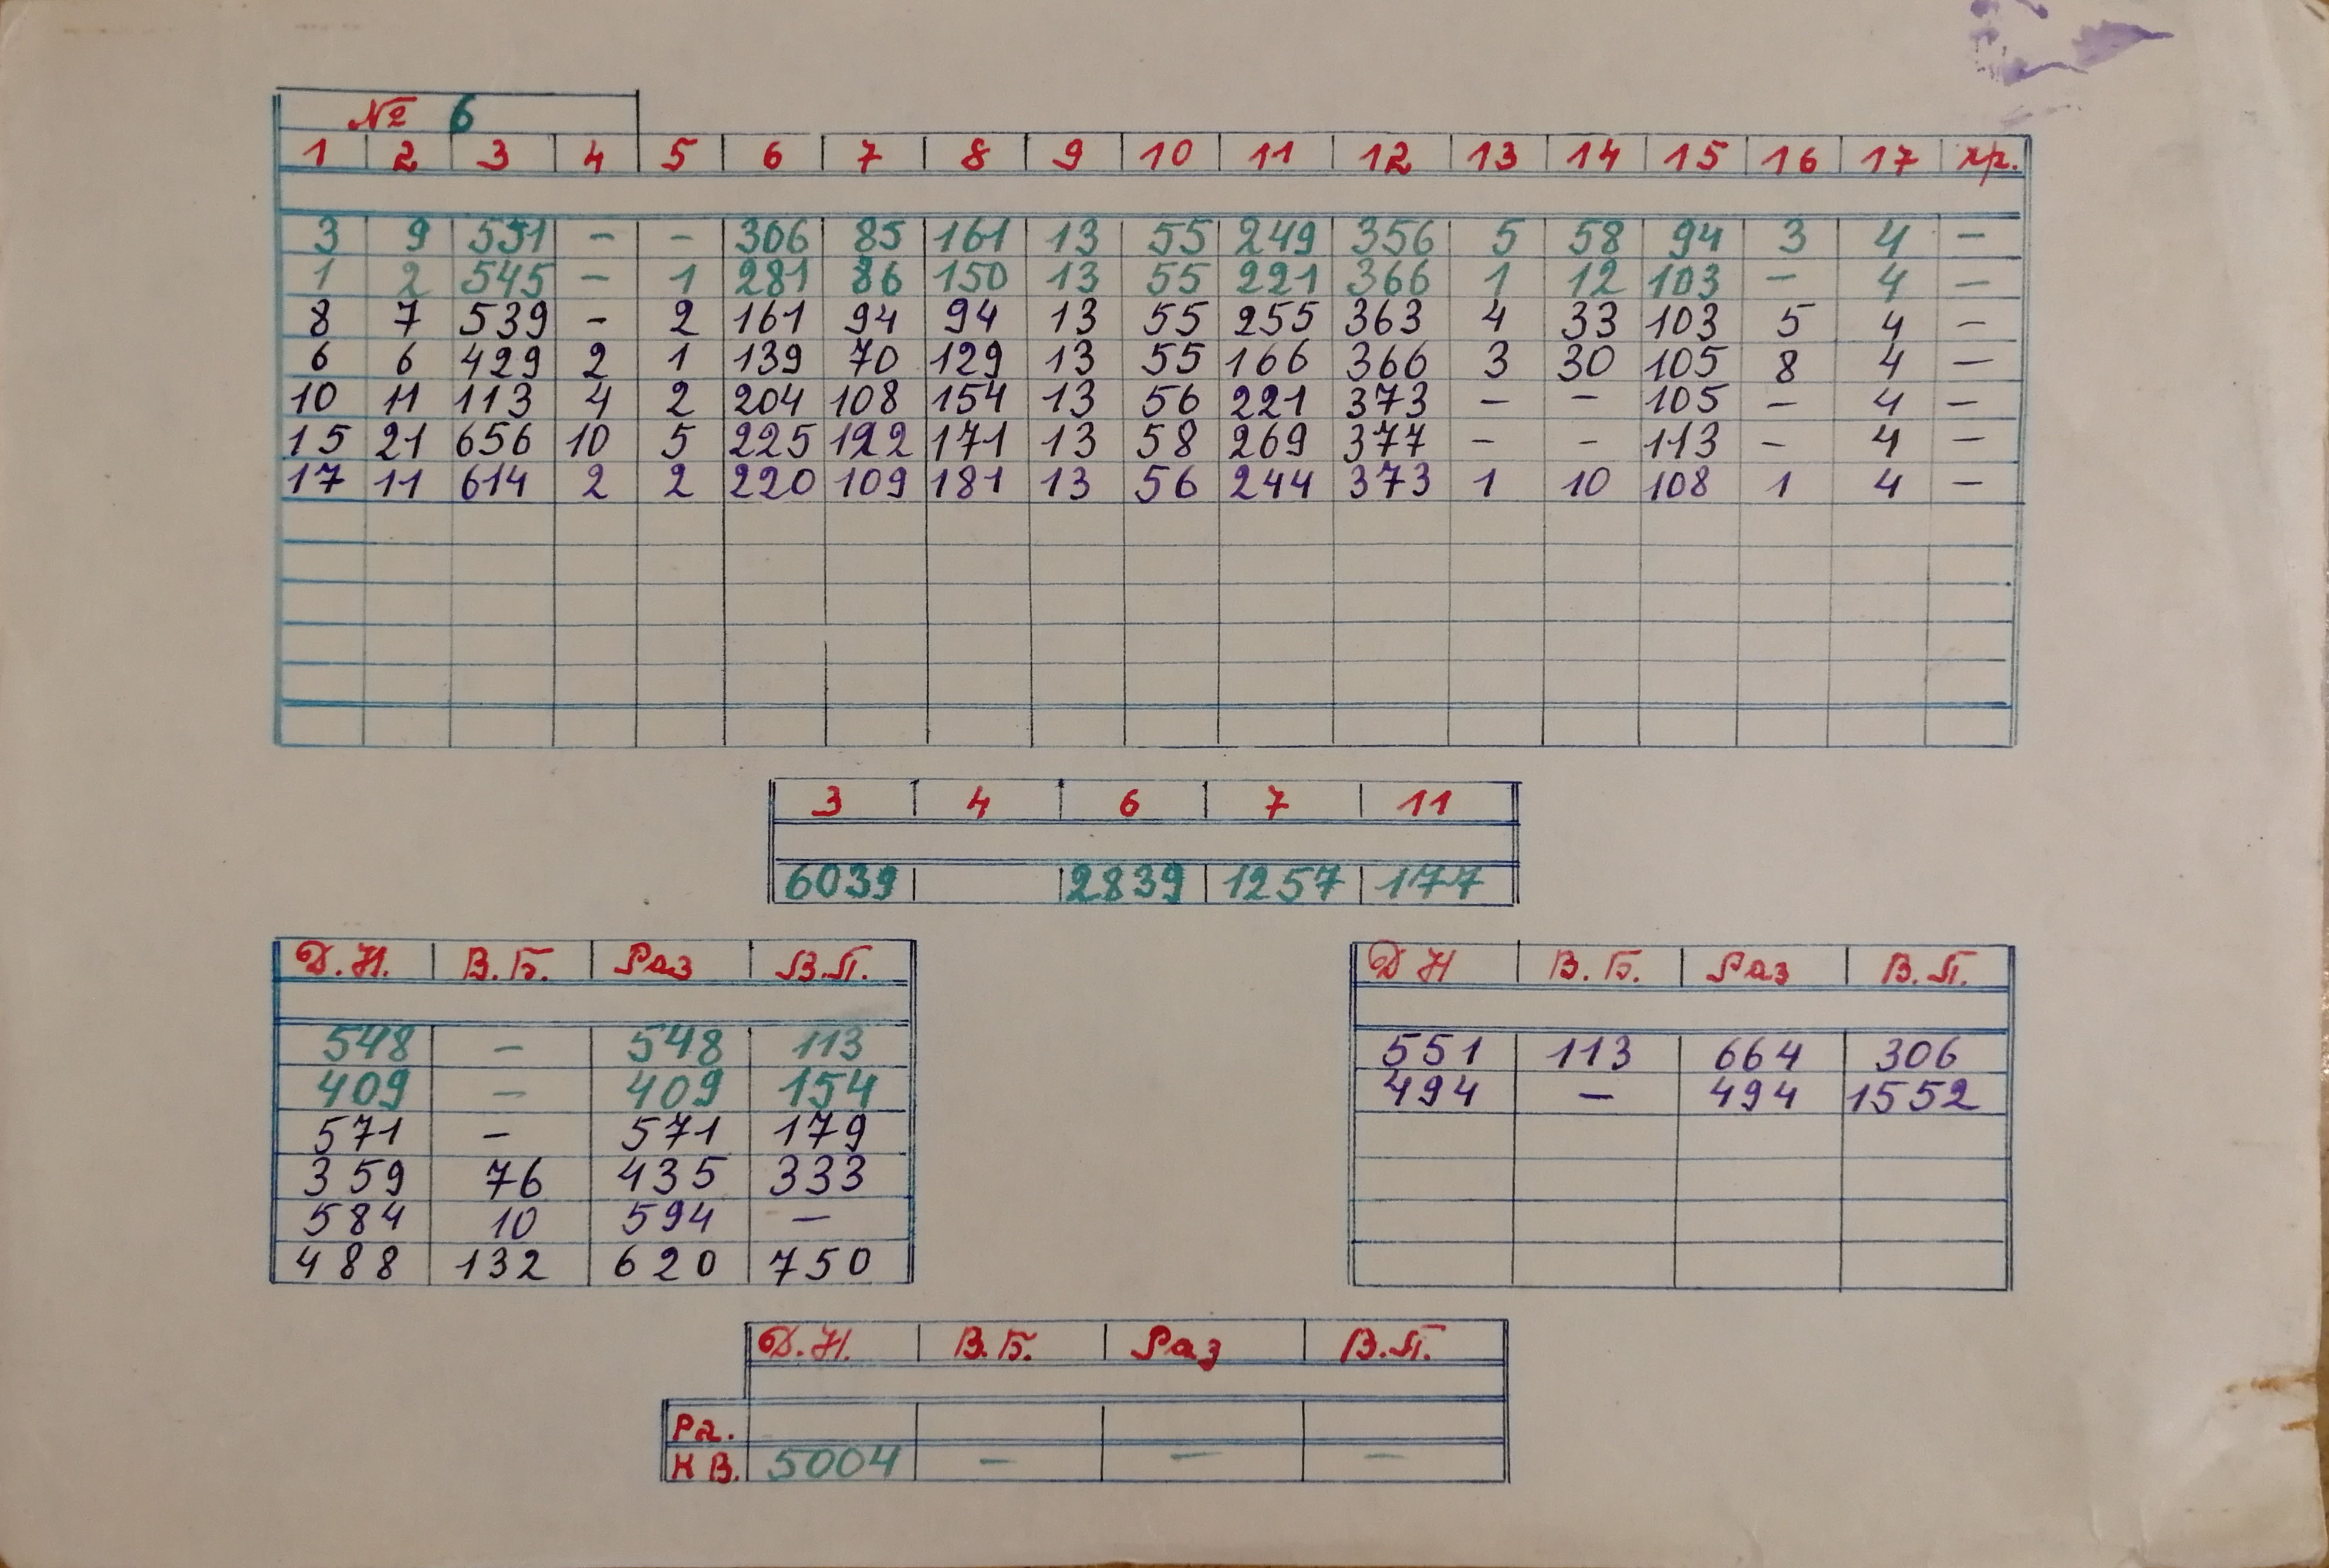 № 6
1 2 3 4 5 6 7 8 9 10 11 12 13 14 15 16 17 хр.
3 9 551 - - 306 85 161 13 55 249 356 5 58 94 3 4 -
1 2 545 - 1 281 86 150 13 55 221 366 1 12 103 - 4 -
8 7 539 - 2 161 94 94 13 55 255 363 4 33 103 5 4 -
6 6 429 2 1 139 70 129 13 55 166 366 3 30 105 8 4 -
10 11 113 4 2 204 108 154 13 56 221 373 - - 105 - 4 -
15 21 656 10 5 225 122 171 13 58 269 377 - - 113 - 4 -
17 11 614 2 2 220 109 181 13 56 244 373 1 10 108 1 4 -
3 4 6 7 11
6039 2839 1257 177
Д.Н. В.Б. Раз В.П.
548 - 548 113
409 - 409 154
571 - 571 179
359 76 435 333
584 10 594 -
488 132 620 750
Д Н В.Б. Раз В.П.
551 113 664 306
494 - 494 1552
Д.Н. В.Б. Раз В.П.
Ра.
К В. 5004 - - -